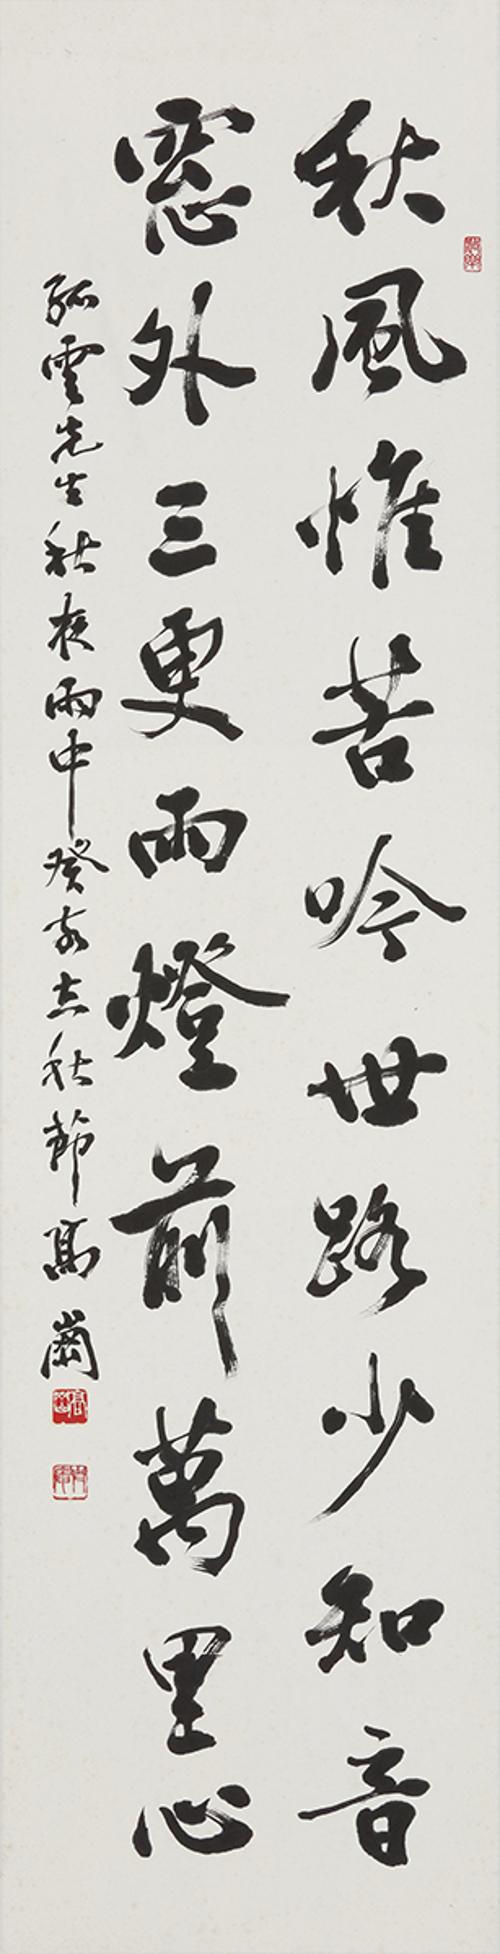 秋風惟苦吟世路少知音
窓外三更雨燈前萬里心
孤雲先生秋夜雨中癸亥立秋節